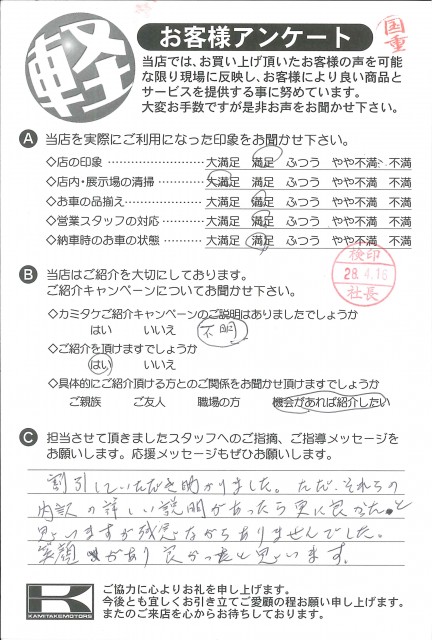 軽
国重
お客様アンケート
当店では、お買い上げ頂いたお客様の声を可能
な限り現場に反映し、お客様により良い商品と
サービスを提供する事に努めています。
大変お手数ですが是非お声をお聞かせ下さい。
A 当店を実際にご利用になった印象をお聞かせ下さい。
◇店の印象 ………………… 大満足 満足 ふつう やや不満 不満
◇店内・展示場の清掃 ………… 大満足 満足 ふつう やや不満 不満
◇お車の品揃え ……………… 大満足 満足 ふつう やや不満 不満
◇営業スタッフの対応 ………… 大満足 満足 ふつう やや不満 不満
◇納車時のお車の状態 ………… 大満足 満足 ふつう やや不満 不満
検印
28.4.16
社長
B 当店はご紹介を大切にしてあります。
ご紹介キャンペーンについてお聞かせ下さい。
◇カミタケご紹介キャンペーンのご説明はありましたでしょうか
はい いいえ 不明
◇ご紹介を頂けますでしょうか
はい いいえ
◇具体的にご紹介頂ける方とのご関係をお聞かせ頂けますでしょうか
ご親族 ご友人 職場の方 機会があれば紹介したい
C 担当させて頂きましたスタッフへのご指摘、ご指導メッセージを
お願いします。応援メッセージもぜひお願いします。
割引していただき助かりました。ただ、それらの
内訳の詳しい説明があったら更に良かった。と
思いますが残念ながらありませんでした。
笑顔があり良かったと思います。
K
KAMITAKEMOTORS
ご協力に心よりお礼を申し上げます。
今後とも宜しくお引き立てご愛顧の程お願い申し上げます。
またのご来店を心からお待ちしております。